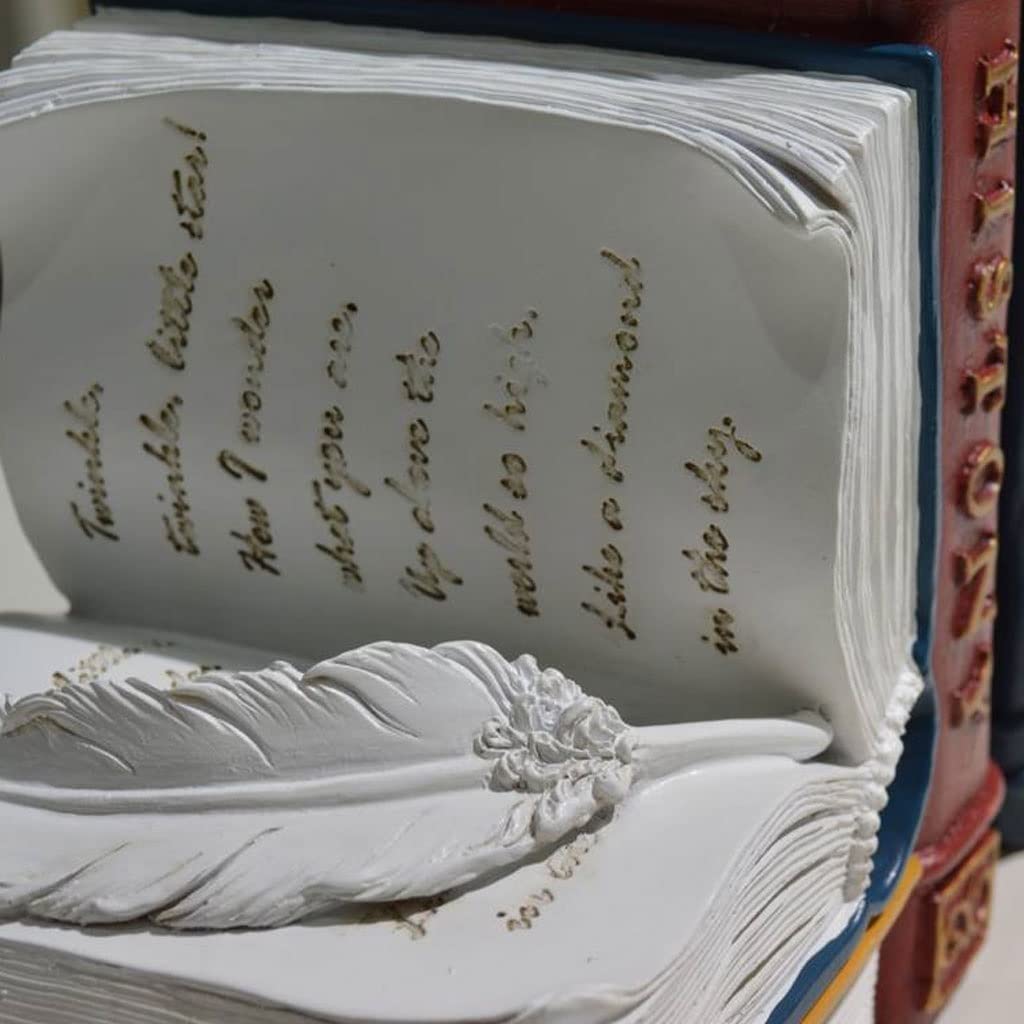 Twinkle,
twinkle, little star!
How I wonder
what you are,
Up above the
world so high,
Like a diamond
in the sky.
HISTORY